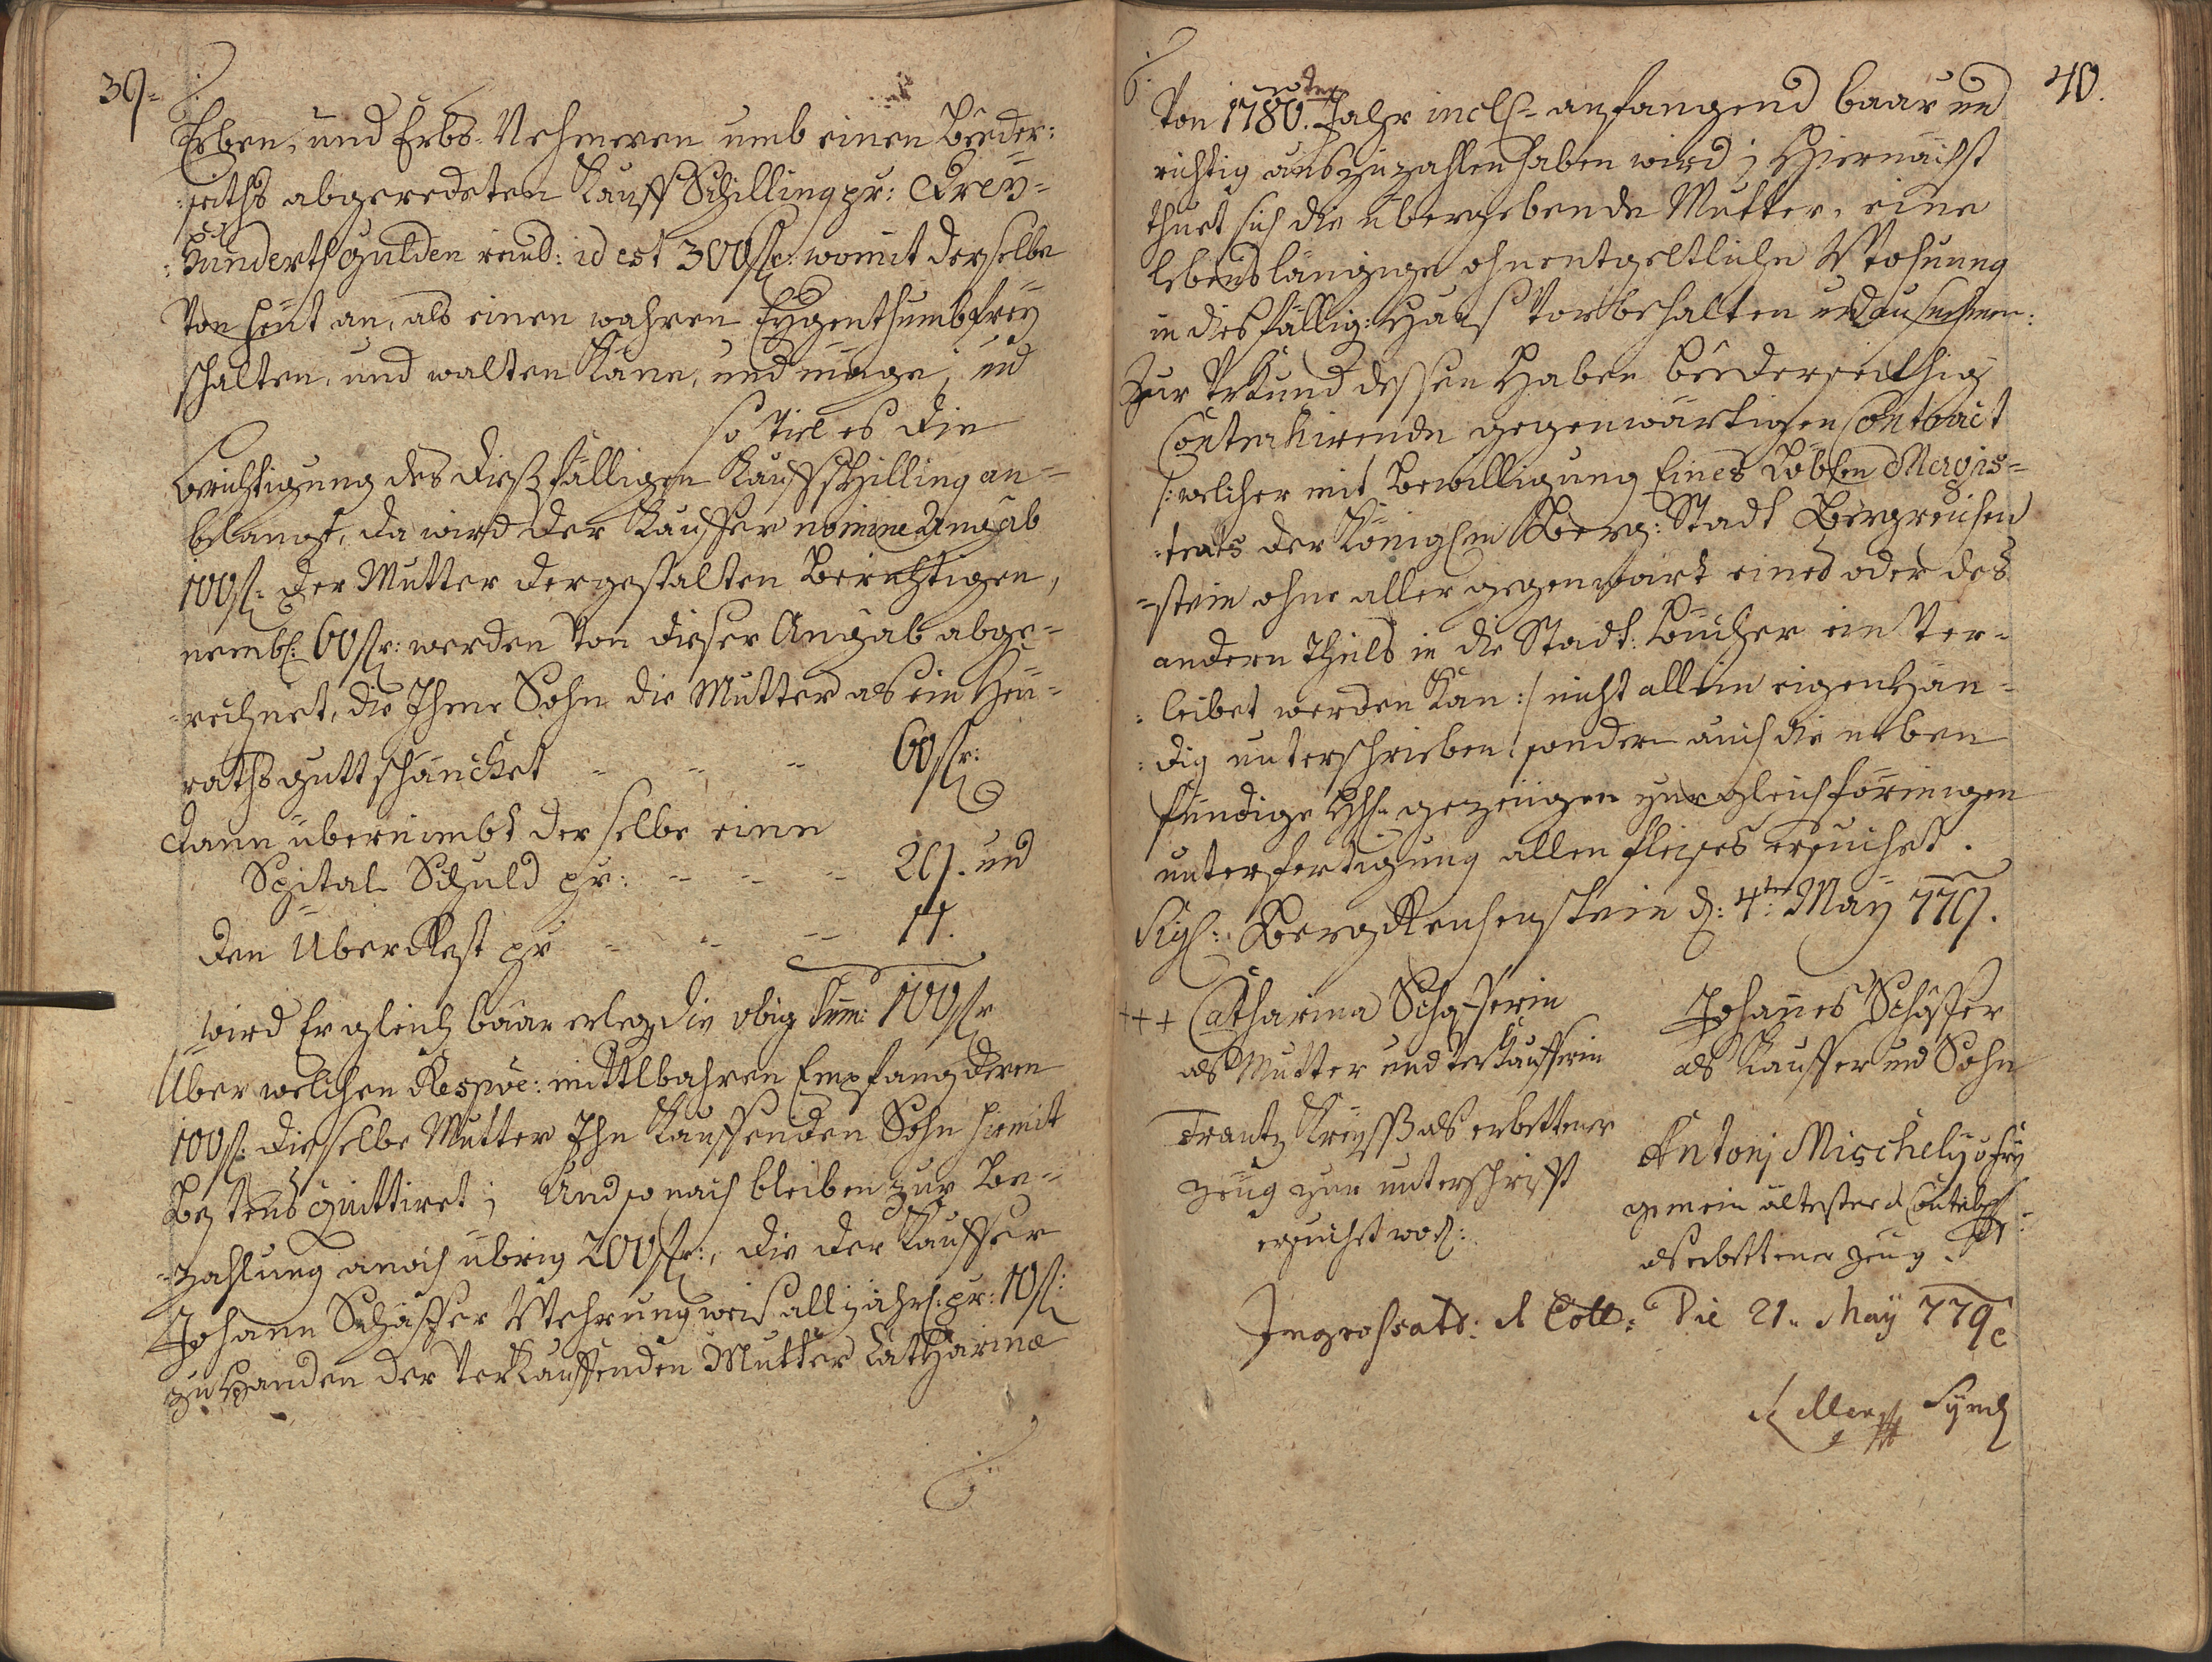 39.
Erben, und Erbs-Nehmeren umb einen beeder-
seiths abgeredeten Kauff Schilling pr: Drey-
Hundert Gulden reinl: id est 300 fl: womit derselbe
Von heut an, als einen wahren Eygenthumb frey
schalten, und walten Kann, und möge; und
so Viel es die
Berichtigung des dießfälligen Kauffschilling an-
belangt, da wird der Kauffer nomine Angab
100 fl: der Mutter dergestalten Berichtigen,
nembl: 60 fl: werden Von dieser Angab abge-
rechnet, die Ihme Sohn die Mutter als ein Heu-
raths gutt schäncket - - - 60 fl:
dann übernimbt derselbe eine
Spital Schuld pr: - - - 29. und
den UberRest pr - - - 11.
wird Er gleich baar erleg die obig Sum: 100 fl
Uber welchen Respve: mittlbahren Empfang deren
100 fl: dieselbe Mutter Ihn Kauffenden Sohn hiemit
Bestens quittiret; Und so nach bleiben zur Be-
zahlung annoch übrig 200 fl:, die der Kauffer
Johann Schäffer Wehrungweiß alljährl: pr: 10 fl:
zu Handen der Verkauffenden Mutter Catharina
40.
Von 1780.ten Jahr incl: anfangend baar und
richtig auszuzahlen haben wird; Hiernächst
thuet sich die übergebende Mutter, eine
lebenslängige ohnentgeltliche Wohnung
in diesfällig: Haus Vorbehalten und ausnehmen:
Zur Urkund dessen Haben beederseithig
Contrahirende gegenwärtigen Contract
/: welcher mit Bewilligung Eines Löblen Magis-
trats der Königlen Berg: Stadt Bergreichen
stein ohne aller gegenwart eines oder des
andern Theils in die Stadt: Bücher ein Ver-
leibet werden Kan :/ nicht allein eigenhän-
dig unterschrieben, sondern auch die neben
stündige HH: gezeugen zur gleichförmigen
unterfertigung allen fleises ersuchet.
Sigl: BergReichenstein d: 4ten May 779.
+++ Catharina Schäfferin
als Mutter und Verkaufferin
Johannes Schäffer
als Kauffer und Sohn
Frantz als erbettener
Zeug zur unterschrifft
ersuchet word:
Antonj Mischely
gemein ältester
als erbettener zeug
Ingrossat: & Coll: Die 21. May 779
Synd